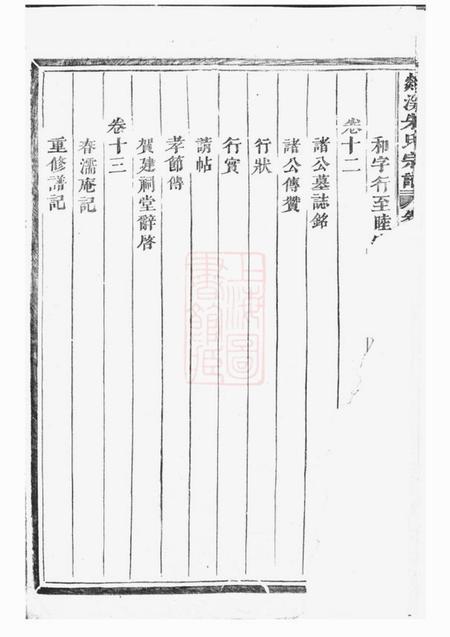 溪朱氏宗譜
和字行至睦字
卷十二
諸公墓誌銘
諸公傳贊
行狀
行實
請帖
孝節傳
賀建祠堂辭啓
卷十三
春濡庵記
重修譜記
上海圖書館藏